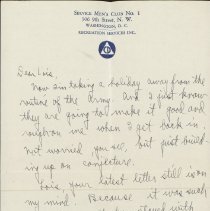 SERVICE MEN'S CLUB NO. 1
306 9TH STREET, N. W.
WASHINGTON, D. C.
RECREATION SERVICES INC.
Dear Lois:
Now I'm taking a holiday away from the
routine of the army. And I just know
they are going to make it good and
rough on me when I get back in
not worried you see, but just build-
ing up on conjecture.
Lois, your latest letter still is on
my mind. Because it was such
stayed with